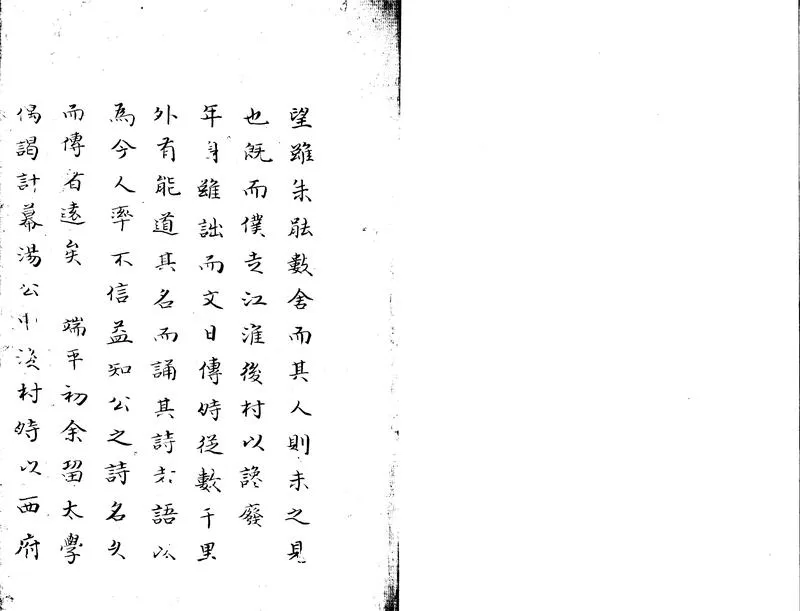 望雖朱融數舍而其人則未之見
也既而僕走江淮後村以讒廢
年身雖詘而文日傳時從數千里
外有能道其名而誦其詩者語以
為今人率不信益知公之詩名久
而傳者遠矣 端平初余留太學
偶謁計幕湯公巾淡村時以西府